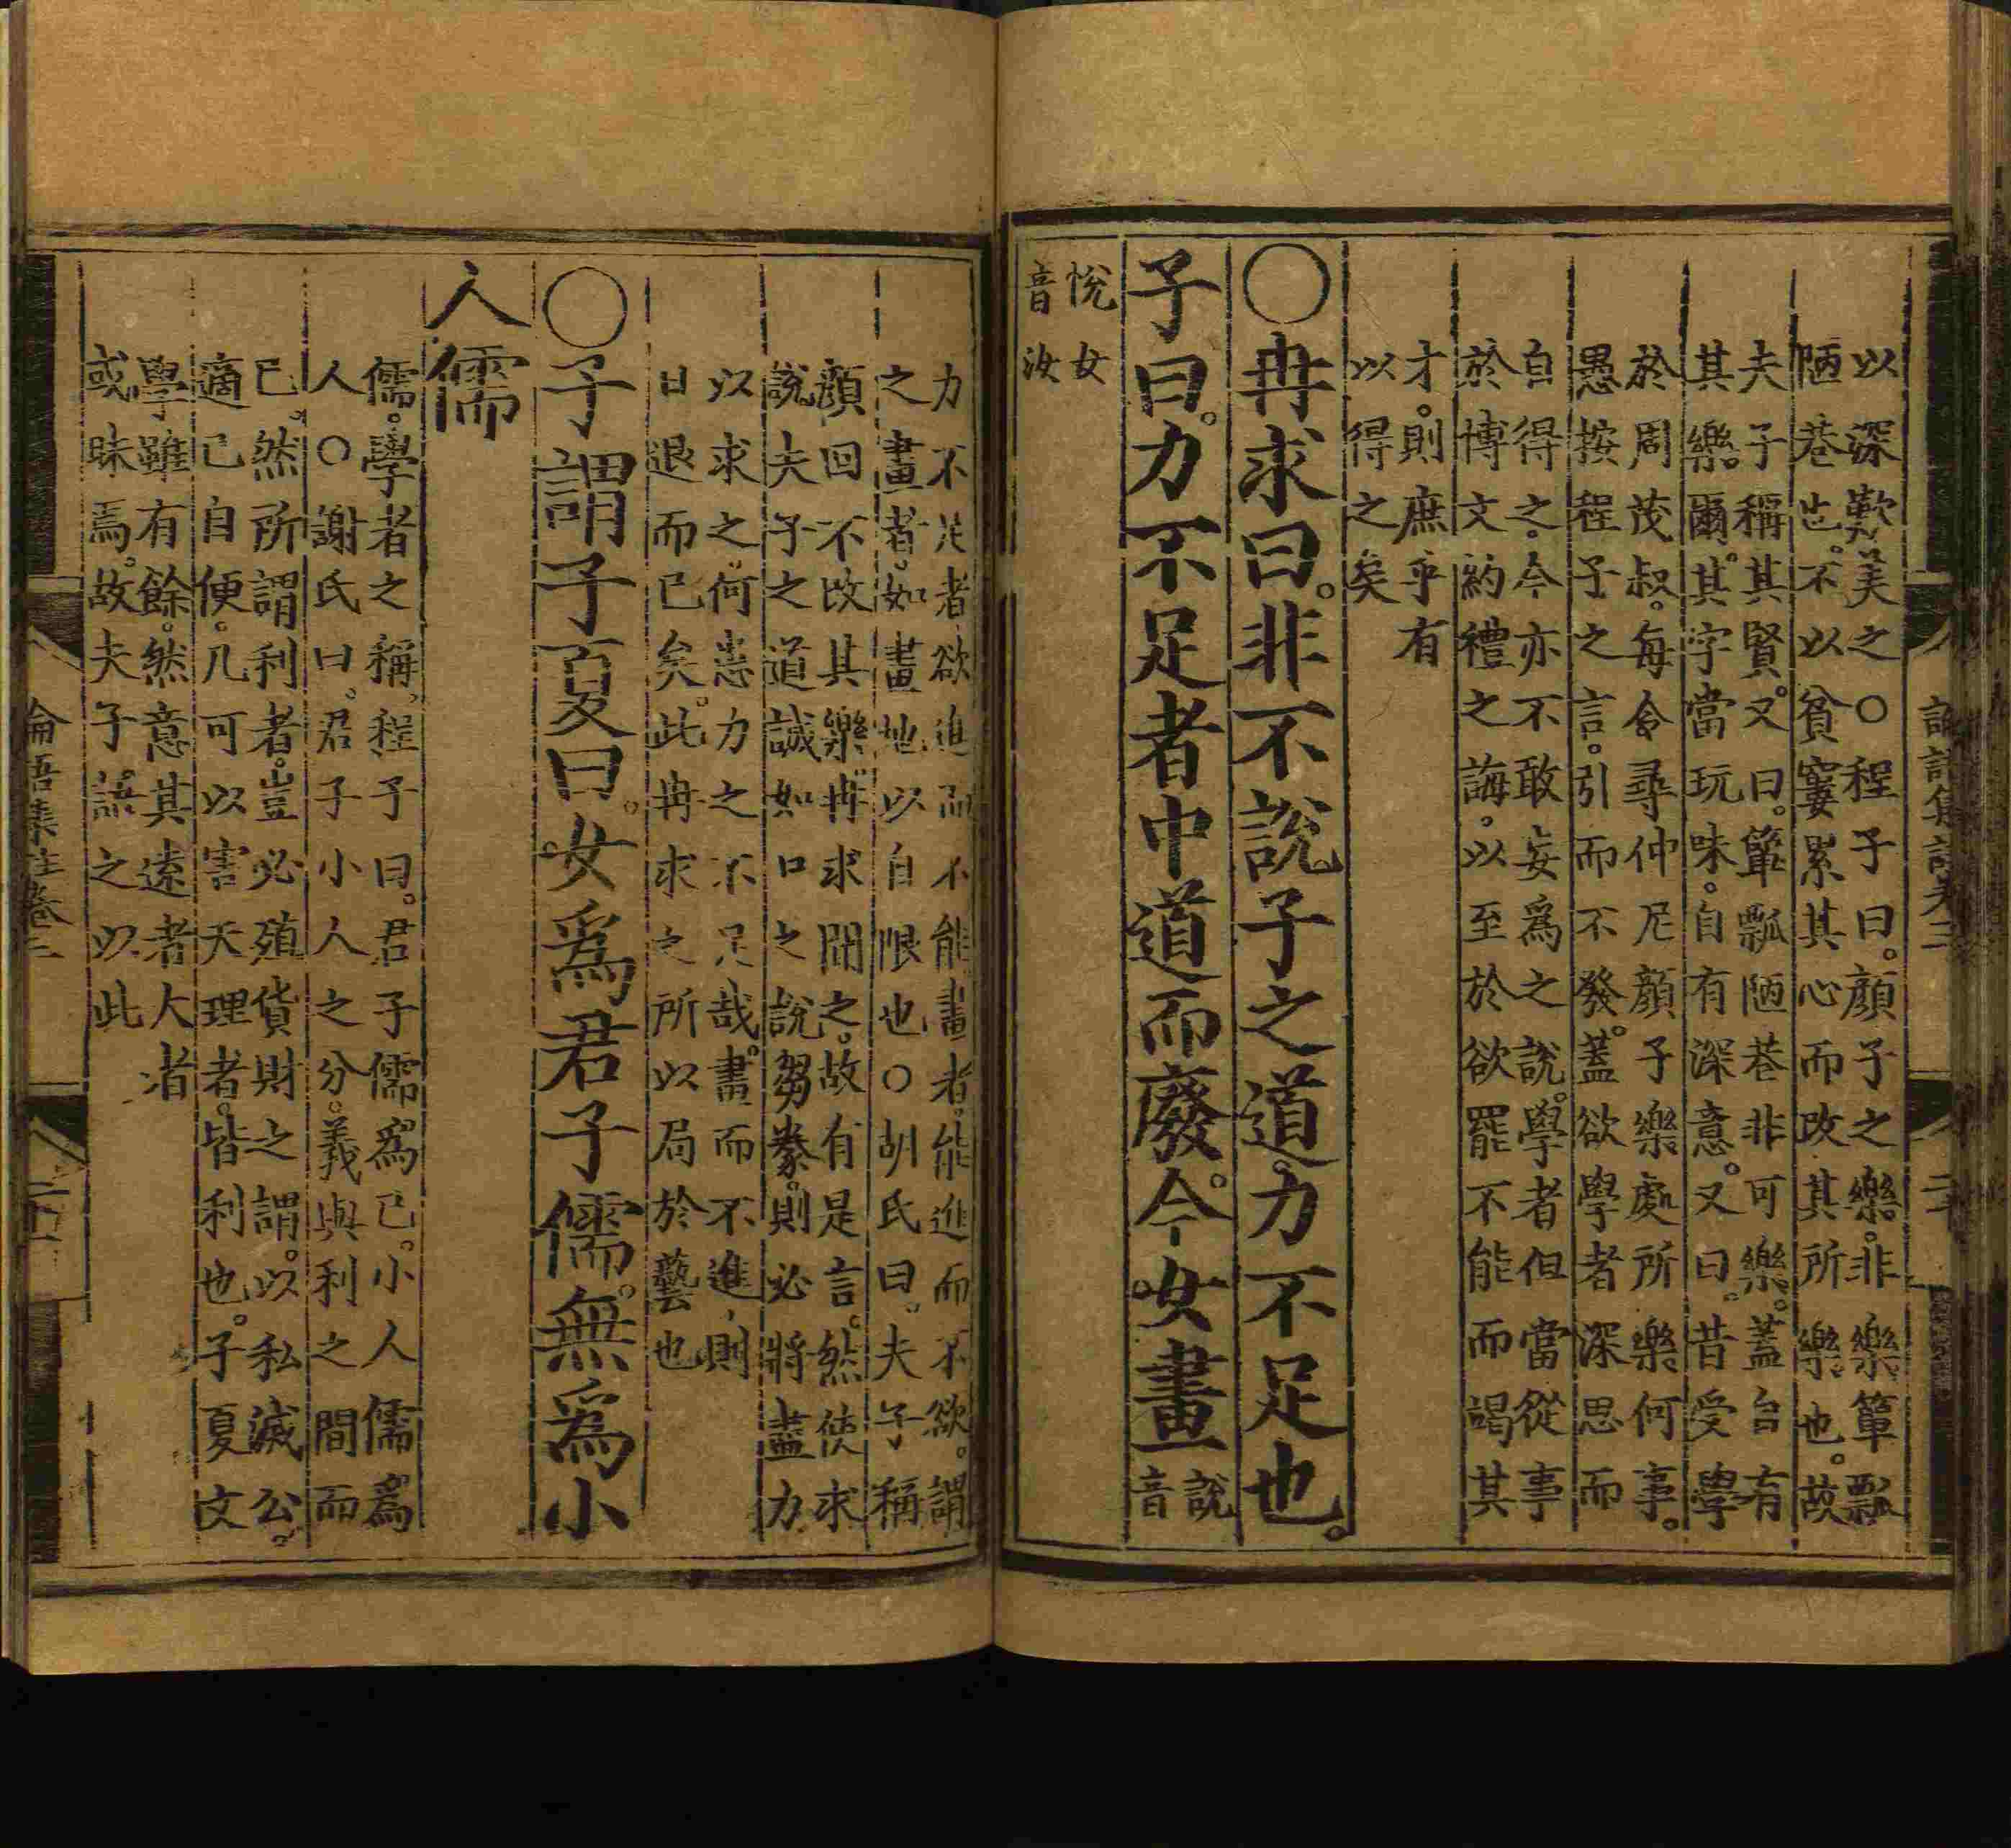 以深歎美之○程子曰。顏子之樂。非樂簞瓢
陋巷也。不以貧窶累其心而改其所樂也。故
夫子稱其賢。又曰。簞瓢陋巷非可樂。蓋自有
其樂。爾。其字當玩味。自有深意。又曰。昔受學
於周茂叔。每令尋仲尼顏子樂處所樂何事。
愚按程子之言。引而不發。蓋欲學者深思而
自得之。今亦不敢妄爲之說。學者但當從事
於博文約禮之誨。以至於欲罷不能而竭其
才。則庶乎有
以得之矣
○冉求曰。非不說子之道。力不足也。
子曰。力不足者中道而廢。今女畫
說
音
悅女
音汝
力不足者欲進而不能。畫者。能進而不欲。謂
之畫者。如畫地以自限也○胡氏曰。夫子稱
顏回不改其樂。冉求聞之。故有是言。然使求
說夫子之道誠如口之說芻豢。則必將盡力
以求之。何患力之不足哉。畫而不進。則
日退而已矣。此冉求之所以局於藝也
○子謂子夏曰。女爲君子儒。無爲小
人儒
儒。學者之稱。程子曰。君子儒爲已。小人儒爲
人○謝氏曰。君子小人之分。義與利之間而
已。然所謂利者。豈必殖貨財之謂。以私滅公。
適已自便。凡可以害天理者。皆利也。子夏文
學雖有餘。然意其遠者大者
或昧焉。故夫子語之以此
論語集註卷三